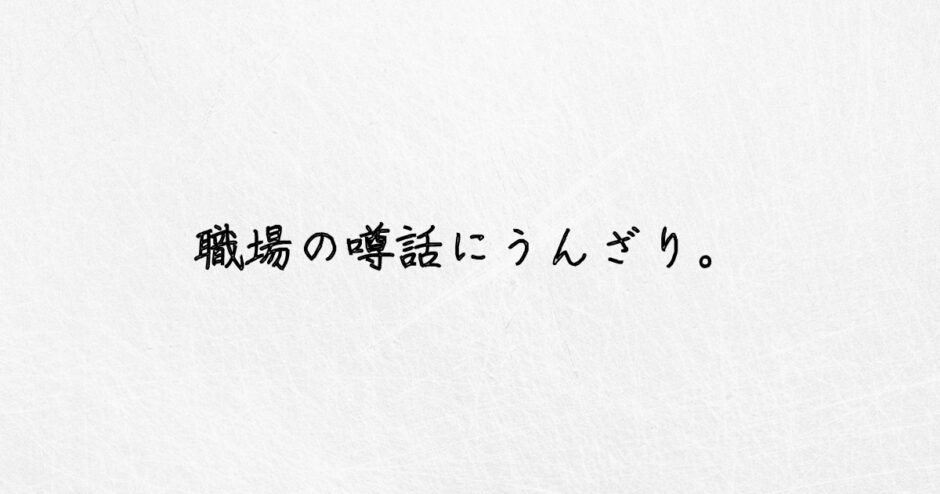 職場の噂話にうんざり。